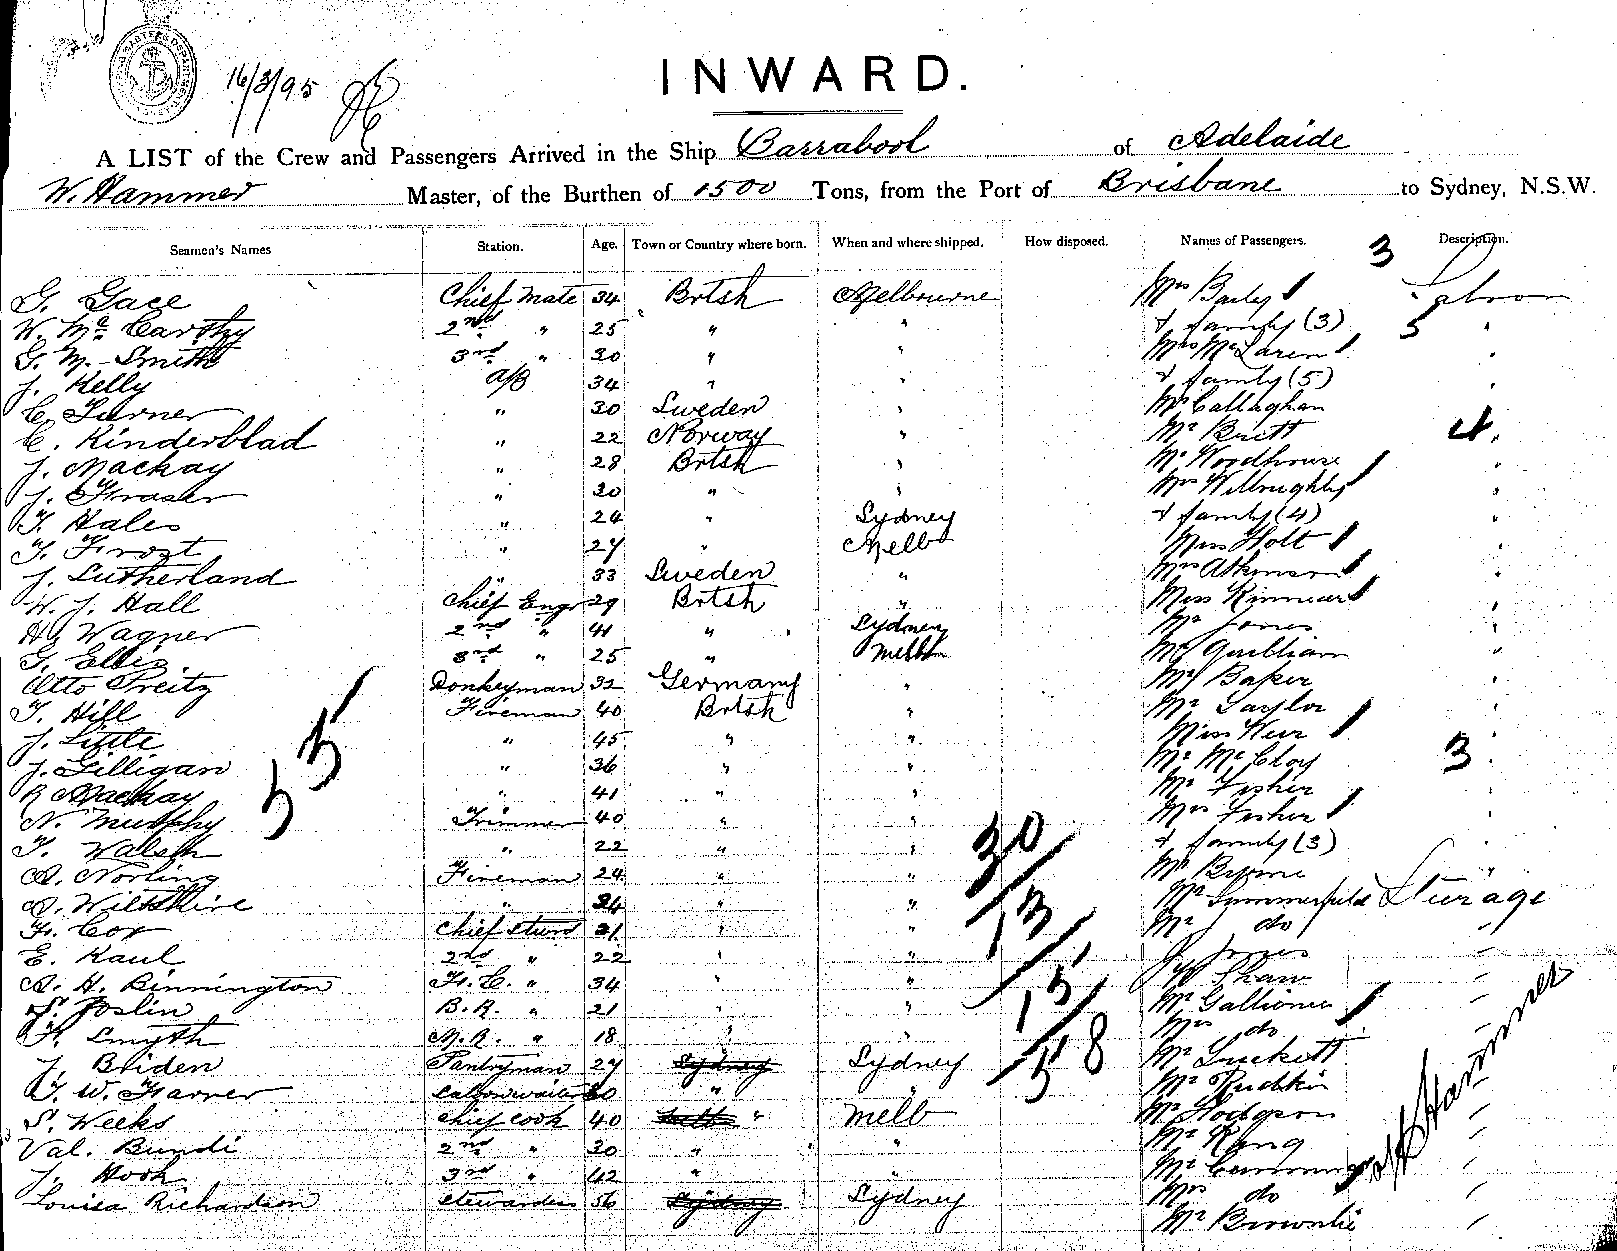 16/3/95
INWARD.
A LIST of the Crew and Passengers Arrived in the Ship Barrabool of Adelaide
W. Hammer Master, of the Burthen of 1500 Tons, from the Port of Brisbane to Sydney, N.S.W.
Seamen's Names Station. Age. Town or Country where born. When and where shipped. How disposed. Names of Passengers. 3 Description.
G. Gace Chief Mate 34 Brtsh Melbourne Mrs Baily Saloon
W. McCarthy 2nd " 25 " " & family (3) 5 "
G. M. Smith 3rd " 30 " " Mrs McLaren "
J. Kelly A/B 34 " " & family (5) "
C. Turner " 30 Sweden " Mr Callaghan
C. Kinderblad " 22 Norway " Mr Brett 4.
J. Mackay " 28 Brtsh " Mr Woodhouse "
J. Fraser " 30 " " Mrs Willoughby "
T. Hales " 24 " Sydney & family (4) "
T. Frost " 27 " Melb Miss Holt "
J. Sutherland " 33 Sweden " Mrs Atkinson "
W. J. Hall Chief Engr 29 Brtsh " Miss Kinnear "
H. Wagner 2nd " 41 " Sydney Mr Jones "
G. Ellis. 3rd " 25 " Melb Mr "
Otto Treitz Donkeyman 32 Germany " Mr Baker "
T. Hill Fireman 40 Brtsh " Mr Taylor "
J. Little " 45 " " Miss Weir "
J. Gilligan " 36 " " Mr McCloy 3 "
R Mackay " 41 " " Mr Fisher "
N. Murphy Trimmer 40 " " Mrs Fisher "
T. Walsh " 22 " " & family (3) "
A. Norling Fireman 24 " " Mr Byrne "
A. Wiltshire " 24 " " Mr Summerfield Sturage
Fr. Cox Chief Stwd 31 " " Mr do "
E. Kaul 2nd " 22 " " J. Jones "
A. H. Binnington F. C. " 34 " " W Shaw "
S. Joslin B. R. " 21 " " Mr "
F. Smyth M. R. " 18 " " Mrs do "
J. Briden Pantryman 27 Sydney Sydney Mr Luckett
T. W. Farner " " Mr Rudkin "
S. Weeks Chief Cook 40 " Melb Mr Hodgson "
Val. Bundi 2nd " 30 " " Mr King "
J. Hook 3rd " 42 " " Mr Cummings "
Louisa Richardson Stewardess 56 Sydney Sydney Mrs do "
Mr Brownlie "
35
30
13
15
58
W Hammer